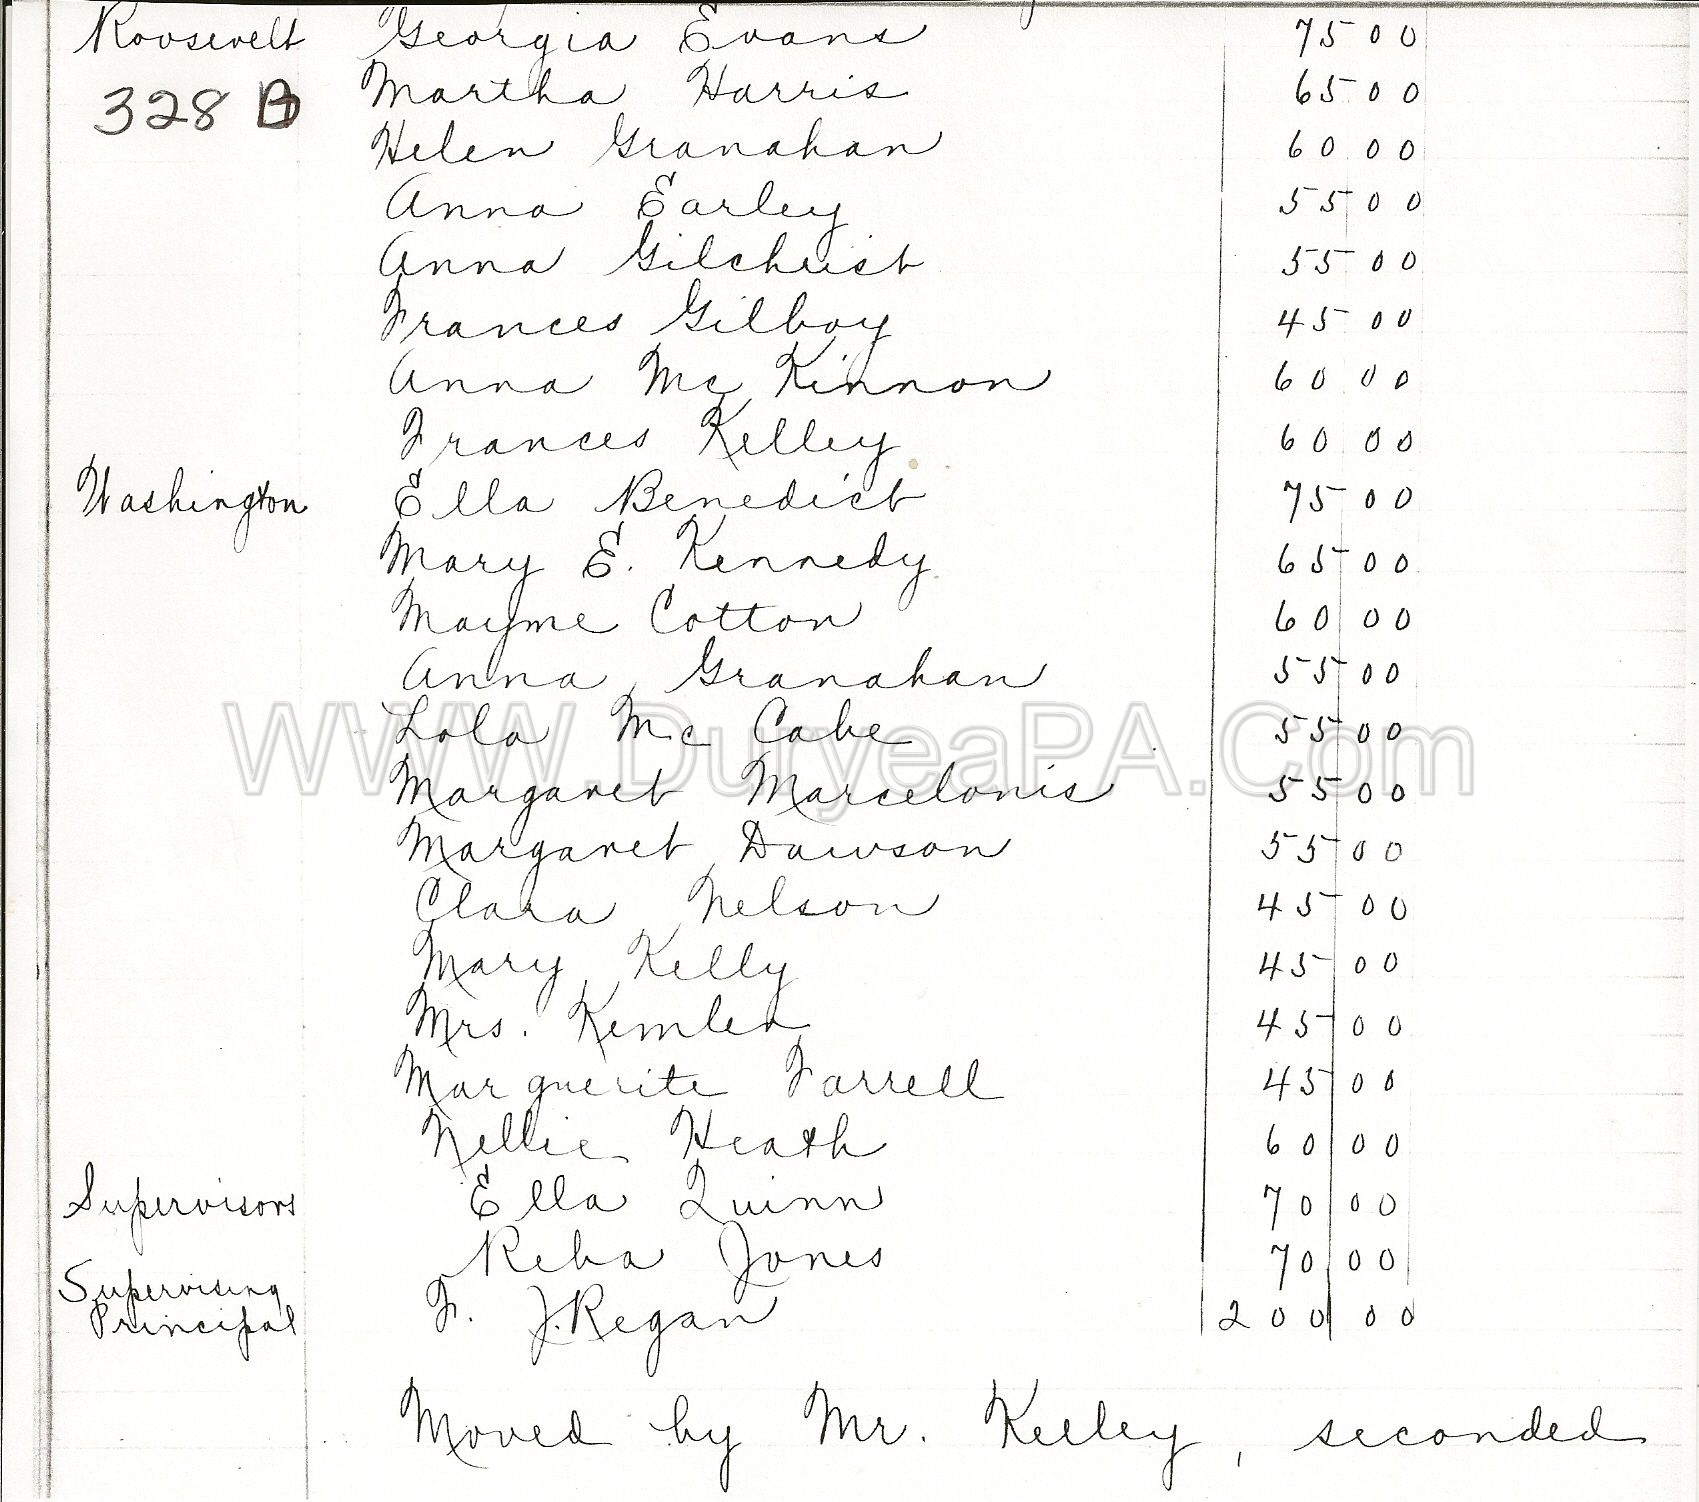 Roosevelt Georgia Evans 75 00
328 B Martha Harris 65 00
Helen Granahan 60 00
Anna Earley 55 00
Anna Gilchrist 55 00
Frances Gilboy 45 00
Anna Mc Kinnon 60 00
Frances Kelley 60 00
Washington Ella Benedict 75 00
Mary E. Kennedy 65 00
Mayme Cotton 60 00
Anna Granahan 55 00
Lola Mc Cabe 55 00
WWW.DuryeaPA.Com
Margaret Marcelonis 55 00
Margaret Dawson 55 00
Clara Nelson 45 00
Mary Kelly 45 00
Mrs. Kemler 45 00
Marguerite Farrell 45 00
Nellie Heath 60 00
Supervisors Ella Quinn 70 00
Reba Jones 70 00
Supervising
Principal F. J. Regan 200 00
Moved by Mr. Kelley, seconded